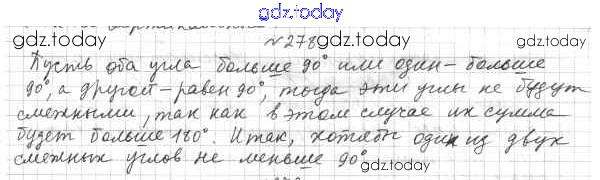 gdz.today
gdz.today №278 gdz.today
Пусть оба угла больше 90° или один - больше
90°, а другой - равен 90°, тогда эти углы не будут
смежными, так как в этом случае их сумма
будет больше 180°. Итак, хотябы один из двух
смежных углов не меньше 90°.
gdz.today